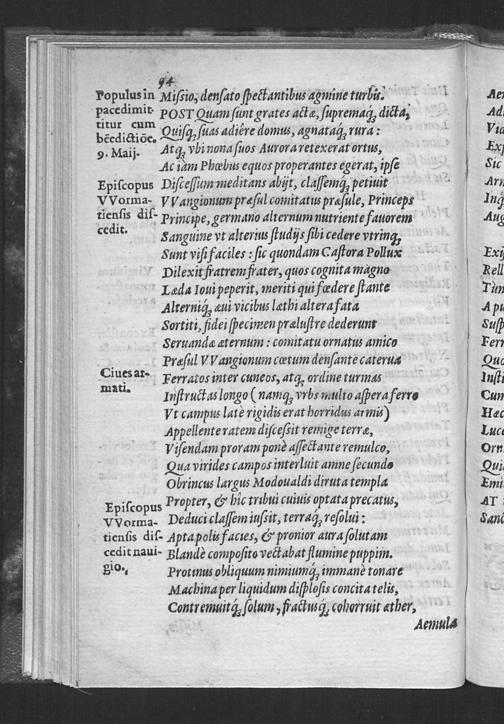 94
Populus in
pacedimit-
titur cum
bēedictiōe.
9. Maij.
Missio, densato spectantibus agmine turbis.
POST Quam sunt grates actæ, supremaq́; dicta,
Quisq́; suas adiêre domus, agnataq́; rura:
Atq́; vbi nona suos Aurora retexerat ortus,
Ac iam Phœbus equos properantes egerat, ipse
Episcopus
VVorma-
tiensis dis-
cedit.
Discessum meditans abijt, classemq́; petiuit
VVangionum præsul comitatus præsule, Princeps
Principe, germano alternum nutriente fauorem
Sanguine vt alterius studijs sibi cedere vtrinq́;
Sunt visi faciles: sic quondam Castora Pollux
Dilexit fratrem frater, quos cognita magno
Læda Ioui peperit, meriti qui fœdere stante
Alterniq́; æui vicibus læthi altera fata
Sortiti, fidei specimen prælustre dederunt
Seruandæ æternum: comitatu ornatus amico
Præsul VVangionum cœtum densante caterua
Ciues ar-
mati.
Ferratos inter cuneos, atq́; ordine turmas
Instructas longo (namq́; vrbs multo aspera ferro
Vt campus latè rigidis erat horridus armis)
Appellente ratem discessit remige terræ,
Visendam proram ponè assectante remulco,
Qua virides campos interluit amne secundo
Obrincus largus Modoualdi diruta templa
Episcopus
VVorma-
tiensis dis-
cedit naui-
gio.
Propter, & hîc tribui cuiuis optata precatus,
Deduci classem iussit, terraq́; resolui:
Apta polis facies, & pronior aura solutam
Blandè composito vectabat flumine puppim.
Protinus obliquum nimiumq́; immanè tonare
Machina per liquidum displosis concita telis,
Contremuitq́; solum, fractusq́; cohorruit æther,
Aemula